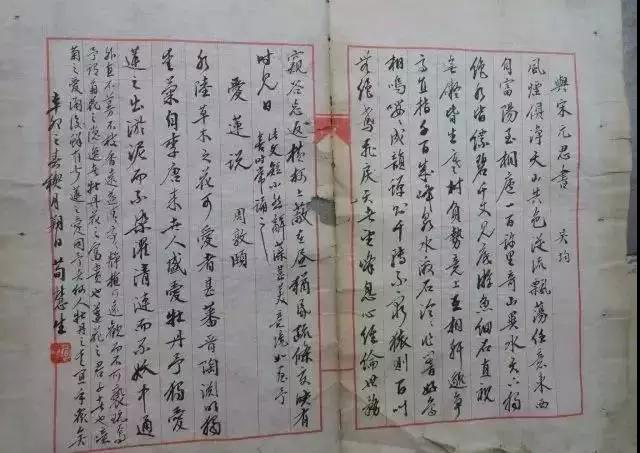 與宋元思書 吳均
風煙俱淨天山共色從流飄蕩任意東西
自富陽至桐廬一百許里奇山異水天下獨
絕水皆縹碧千丈見底游魚細石直視
無礙皆生寒樹負勢竟上互相軒邈爭
高直指千百成峰泉水激石泠泠作響好鳥
相鳴嚶嚶成韻蟬則千轉不窮猿則百叫
無絕鳶飛戾天者望峰息心經綸世務
窺谷忘返橫柯上蔽在晝猶昏疏條交映有
時見日 此文短小然辭藻甚美
愛蓮說 周敦頤
水陸草木之花可愛者甚蕃晉陶淵明獨
愛菊自李唐來世人盛愛牡丹予獨愛
蓮之出淤泥而不染濯清漣而不妖中通
外直不蔓不枝香遠益清亭亭靜植可遠觀而不可褻玩焉
予謂菊花之隱逸者也牡丹花之富貴者也蓮花之君子者也噫
菊之愛陶後鮮有聞蓮之愛同予者何人牡丹之愛宜乎眾矣
辛卯之春月朔日 荀慧生